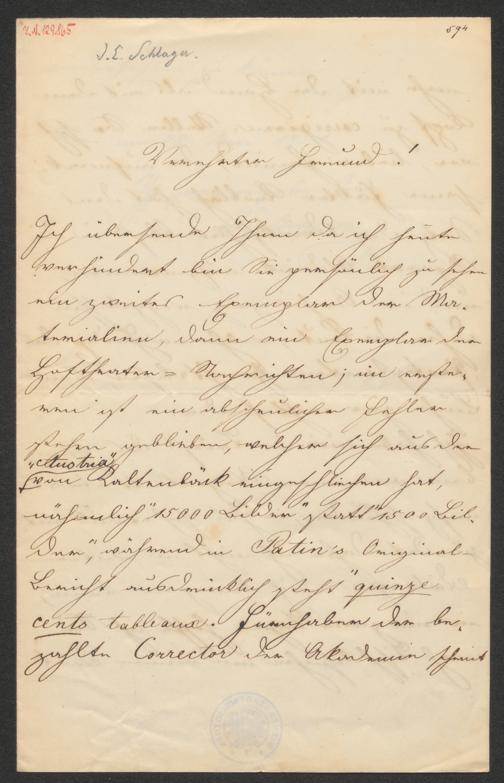 I.N. 129.865
594
J. E. Schlager.
Verehrter Freund!
Ich übersende Ihnen da ich heute
verhindert bin Sie persönlich zu sehen
ein zweites Exemplar der Ma-
terialien, dann ein Exemplar der
Hoftheater-Nachrichten; im erste-
ren ist ein abscheulicher Fehler
stehen geblieben, welcher sich aus der
"Austria"
von Kaltenbäck eingeschlichen hat,
nähmlich "15000 Bilder" statt "1500 Bil-
der", während in Patin's Original-
Bericht ausdrücklich steht "quinze
cents tableaux. Fürnhaber der be-
zahlte Corrector der Akademie scheint